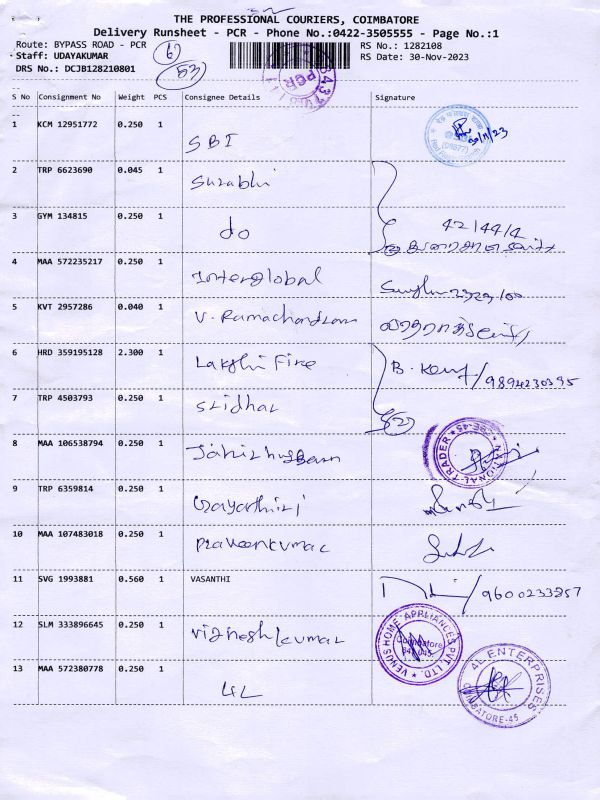 THE PROFESSIONAL COURIERS, COIMBATORE
Delivery Runsheet - PCR - Phone No.:0422-3505555 - Page No.:1
Route: BYPASS ROAD - PCR
RS No.: 1282108
Staff: UDAYAKUMAR
RS Date: 30-Nov-2023
DRS No.: DCJB128210801
61
53
PCR
S No Consignment No Weight PCS Consignee Details Signature
1 KCM 12951772 0.250 1 SBI 30/11/23
2 TRP 6623690 0.045 1 Surabhi
3 GYM 134815 0.250 1 do 42/44/4
4 MAA 572235217 0.250 1 Interglobal
5 KVT 2957286 0.040 1 V. Ramachandran
6 HRD 359195128 2.300 1 Lakshi Fire B. /9894230395
7 TRP 4503793 0.250 1 Sridhar
8 MAA 106538794 0.250 1 NATIONAL TRADER CBE-45
9 TRP 6359814 0.250 1 Gayathiri
10 MAA 107483018 0.250 1 Praveenkumar
11 SVG 1993881 0.560 1 VASANTHI /9600233857
12 SLM 333896645 0.250 1 Vignesh kumar VENUS HOME APPLIANCES PVT. LTD. Coimbatore 641 045
13 MAA 572380778 0.250 1 4L 4L ENTERPRISES COIMBATORE-45